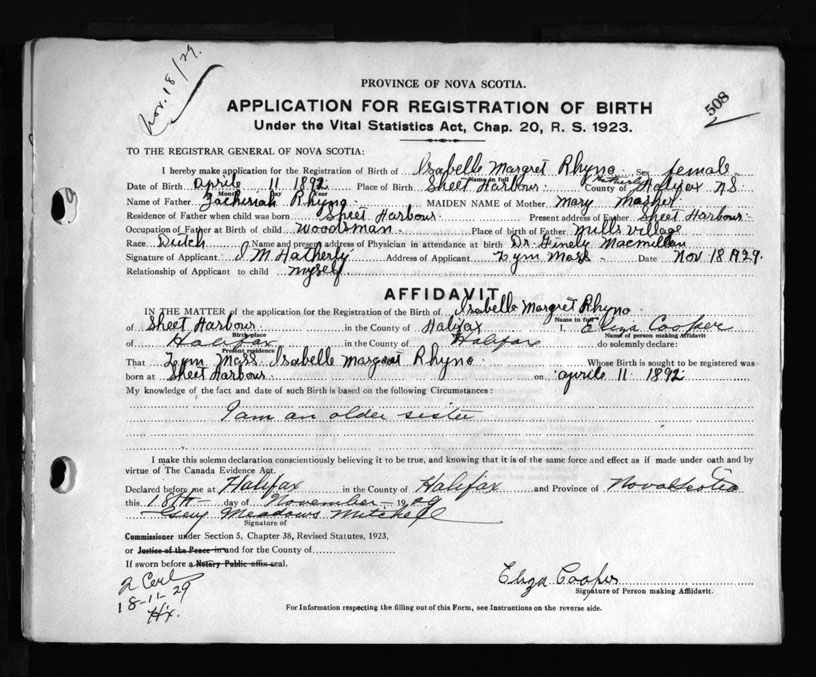 Nov. 18/29.
508
PROVINCE OF NOVA SCOTIA.
APPLICATION FOR REGISTRATION OF BIRTH
Under the Vital Statistics Act, Chap. 20, R. S. 1923.
TO THE REGISTRAR GENERAL OF NOVA SCOTIA:
I hereby make application for the Registration of Birth of Isabelle Margret Rhyno Sex female
Name in full Hatherly
Date of Birth Aprile 11 1892 Place of Birth Sheet Harbour County of Halifax N.S.
Month Day Year
Name of Father Zachiriah Rhyno MAIDEN NAME of Mother Mary Mosher
Residence of Father when child was born Sheet Harbour Present address of Father Sheet Harbour
Occupation of Father at Birth of child Woodsman Place of birth of Father Mills village
Race Dutch Name and present address of Physician in attendance at birth Dr. Finely Macmillan
Signature of Applicant I M Hatherly Address of Applicant Lynn Mass Date Nov 18 1929.
Relationship of Applicant to child myself
AFFIDAVIT
IN THE MATTER of the application for the Registration of the Birth of Isabelle Margret Rhyno
Name in full
of Sheet Harbour in the County of Halifax I, Eliza Cooper
Birth-place Name of person making Affidavit
of Halifax in the County of Halifax do solemnly declare:
Present residence
That Lynn Mass Isabelle Margret Rhyno Whose Birth is sought to be registered was
born at Sheet Harbour on Aprile 11 1892
My knowledge of the fact and date of such Birth is based on the following Circumstances:
I am an older sister
I make this solemn declaration conscientiously believing it to be true, and knowing that it is of the same force and effect as if made under oath and by
virtue of The Canada Evidence Act.
Declared before me at Halifax in the County of Halifax and Province of Nova Scotia
this 18th day of November 1929
Meadows Mitchell
Signature of
Commissioner under Section 5, Chapter 38, Revised Statutes, 1923,
or Justice of the Peace in and for the County of
If sworn before a Notary Public affix seal.
2 Cert
18-11-29
Hx.
Eliza Cooper
Signature of Person making Affidavit.
For Information respecting the filling out of this Form, see Instructions on the reverse side.